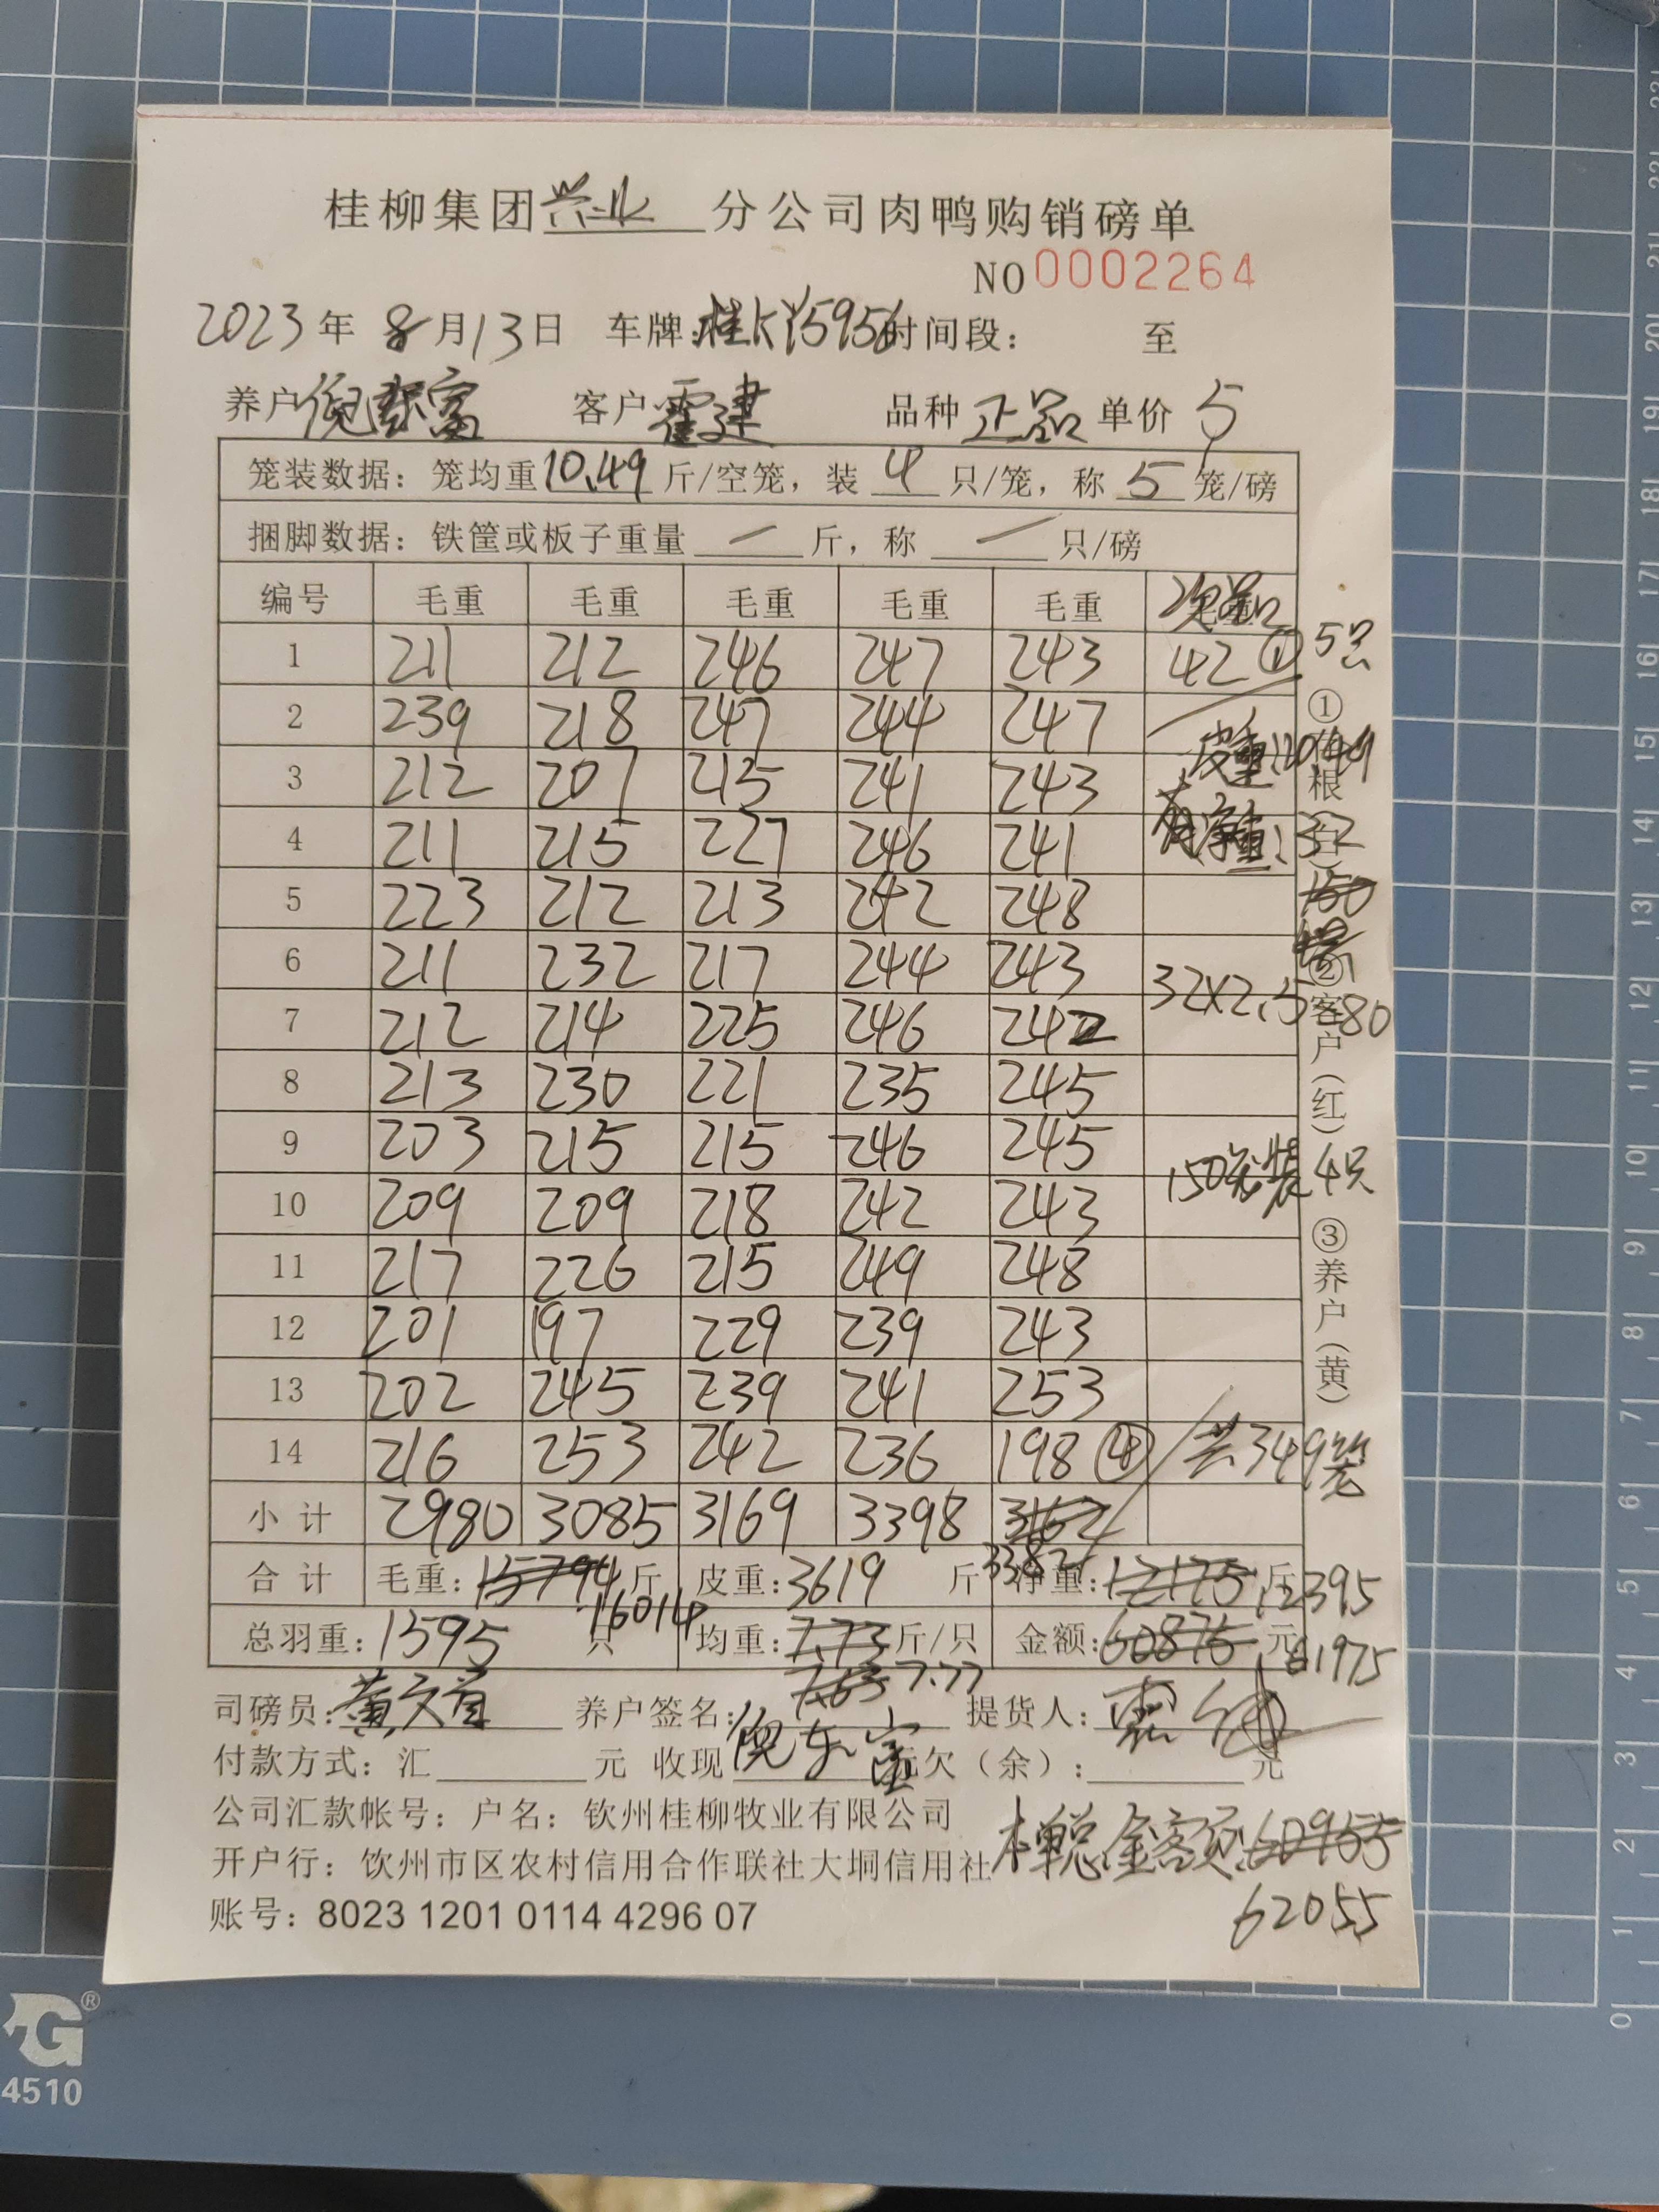 桂柳集团兴业分公司肉鸭购销磅单
NO 0002264
2023年 8月13日 车牌:桂KY5956 时间段: 至
养户 倪东富 客户 霍建 品种 正品 单价 5
笼装数据: 笼均重10.49斤/空笼, 装 4 只/笼, 称 5 笼/磅
捆脚数据: 铁筐或板子重量 — 斤, 称 — 只/磅
编号 毛重 毛重 毛重 毛重 毛重 次品
1 211 212 246 247 243 42 ① 5只
2 239 218 247 244 247
皮重:10.49
3 212 207 215 241 243
4 211 215 227 246 241 净重:32
5 223 212 213 242 248
6 211 232 217 244 243 32×2.5=80
7 212 214 225 246 242
8 213 230 221 235 245
9 203 215 215 246 245 150笼装4只
10 209 209 218 242 243
11 217 226 215 249 248
12 201 197 229 239 243
13 202 245 239 241 253
14 216 253 242 236 198 ④ 共349笼
小计 2980 3085 3169 3398 3162
3382
合计 毛重:15794斤 皮重:3619 斤 净重:12175斤 12395
16014
总羽重:1595 只 均重:7.73斤/只 金额:60875元 61975
7.63 7.77
司磅员:黄文首 养户签名: 倪东富 提货人:
付款方式: 汇 元 收现 元欠(余): 元
公司汇款帐号: 户名: 钦州桂柳牧业有限公司
开户行: 钦州市区农村信用合作联社大垌信用社
本单总金额:60955
62055
账号: 8023 1201 0114 4296 07
① 根(白) ②客户(红) ③养户(黄)
G®
4510
22 21 20 19 18 17 16 15 14 13 12 11 10 9 8 7 6 5 4 3 2 1 0